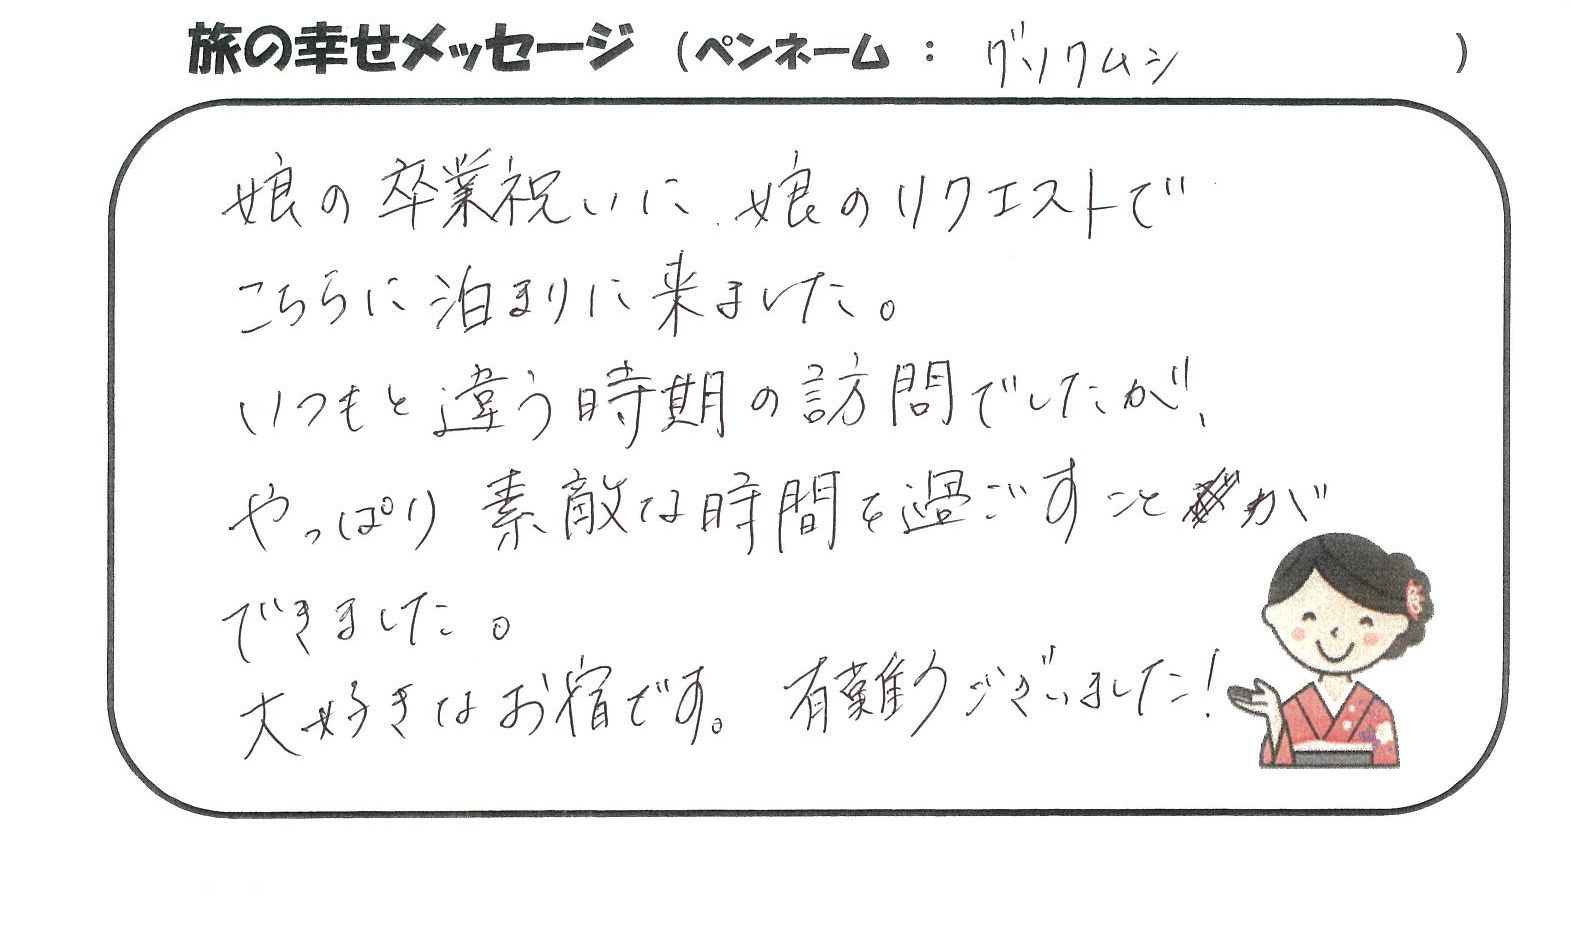 旅の幸せメッセージ （ペンネーム ： グソクムシ ）
娘の卒業祝いに、娘のリクエストで
こちらに泊まりに来ました。
いつもと違う時期の訪問でしたが、
やっぱり素敵な時間を過ごすことが
できました。
大好きなお宿です。有難うございました！